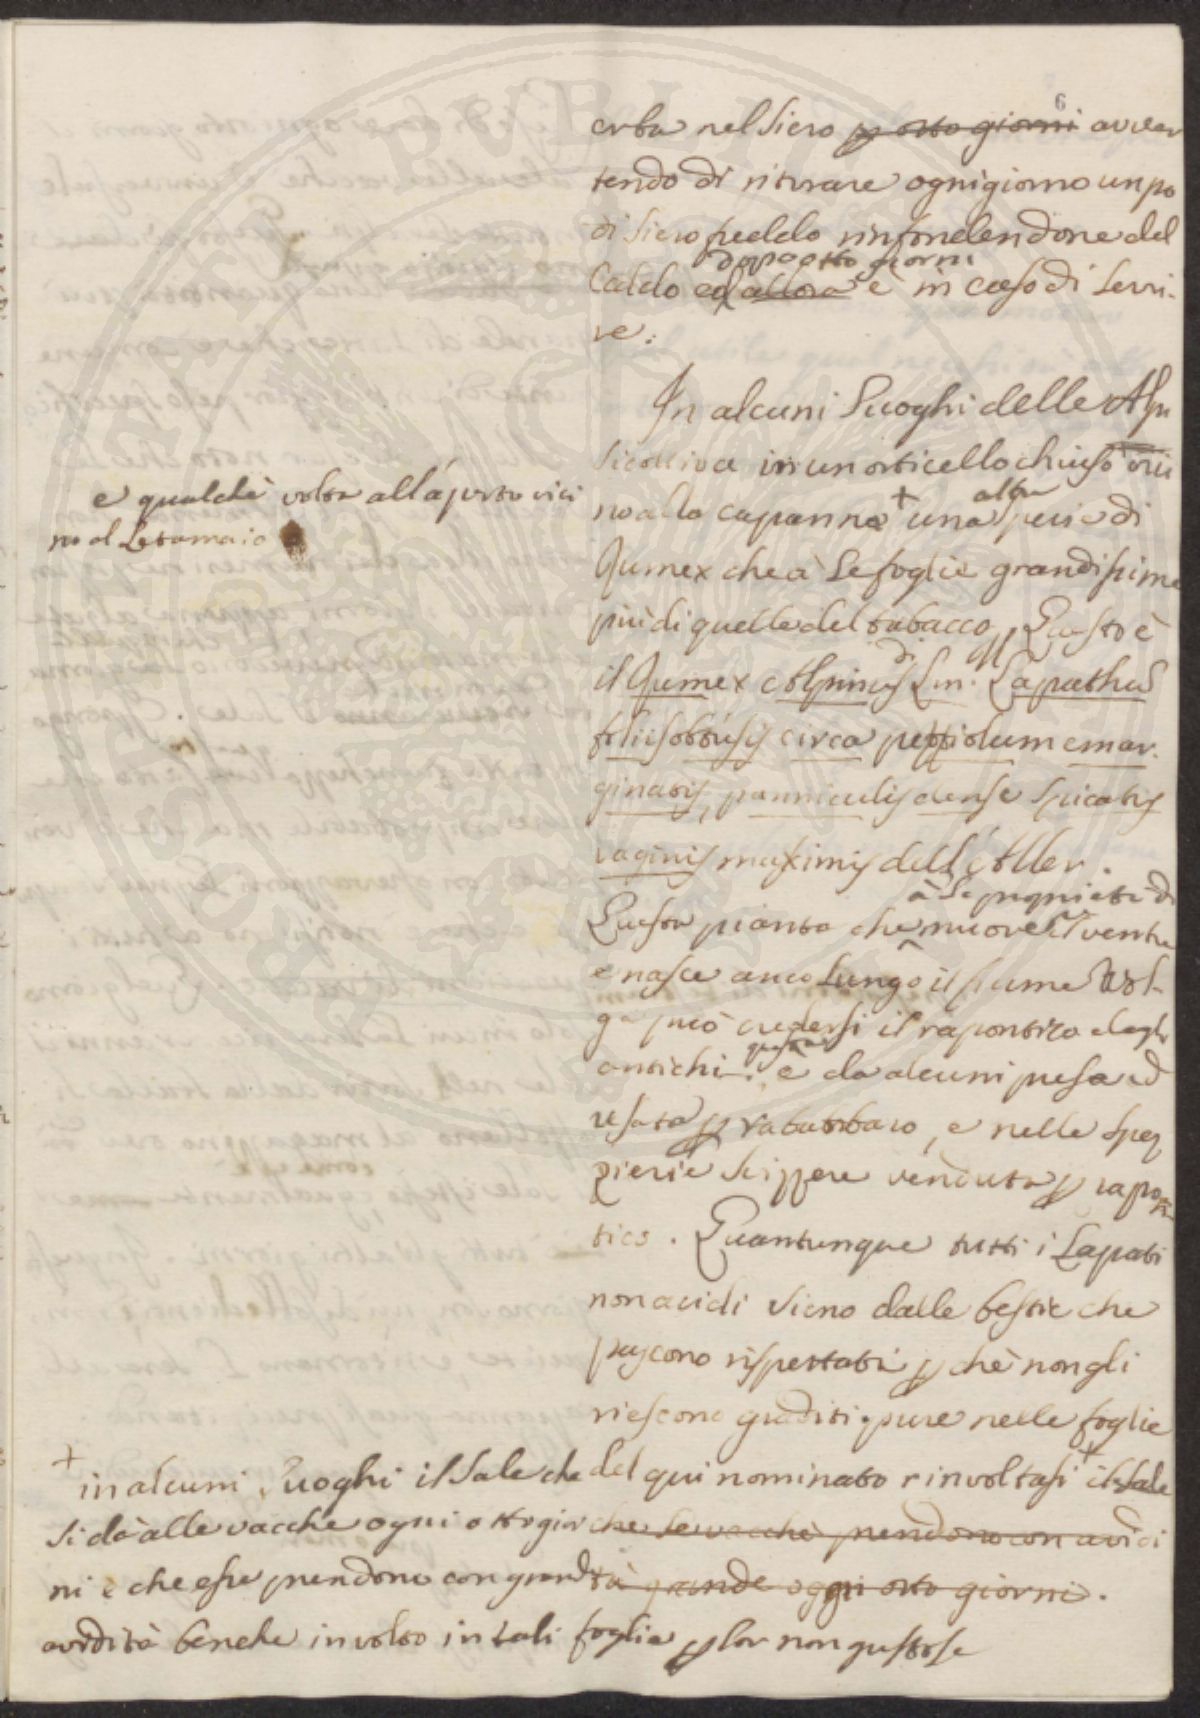 6
erba nel siero p otto giorni avver
tendo di ritirare ogni giorno un po
di siero freddo rinfondendone del
dopo otto giorni
caldo ed allora è in caso di servi-
re.
In alcuni luoghi delle Alpi
si coltiva in un orticello chiuso vici
e qualche volta all'aperto vici
no al Letamaio
no alla capanna + una altra specie di
Rumex che à le foglie grandissime
più di quelle del tabacco, Questo è
il Rumex Alpinus di Lin. Lapathus
foliis obtusis circa petiolum emar-
ginatis, panniculis dense spicatis
vaginis maximis dell' Aller.
à la proprietà di
Questa pianta che muove il ventre
e nasce anco lungo il fiume Vol-
ga può credersi il rapontico degli
antichi. questa è da alcuni presa ed
usata p rabarbaro, e nelle spez
zierie venduta p rapon
tico. Quantunque tutti i Lapati
non acidi sieno dalle bestie che
pascono rispettati p chè non gli
riescono graditi pure nelle foglie
del qui nominato rinvoltasi + il sale
che le vacche prendono con avidi
tà grande ogni otto giorni.
+ in alcuni luoghi il sale che
si dà alle vacche ogni otto gior
ni e che esse prendono con grand
avidità benche involto in tali foglie p lor non gustose